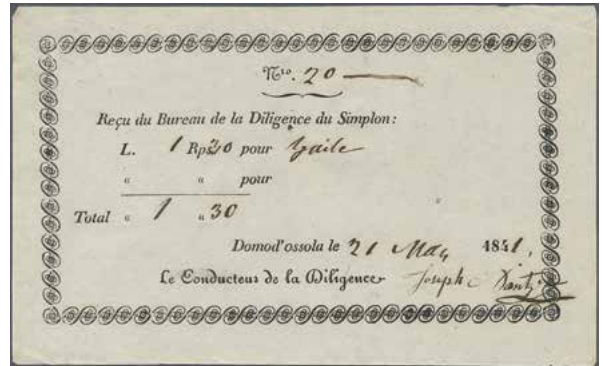 Nro. 20
Reçu du Bureau de la Diligence du Simplon:
L. 1 Rps 30 pour
" " pour
Total " 1 " 30
Domod'ossola le 21 May 1841.
Le Conducteur de la Diligence Joseph